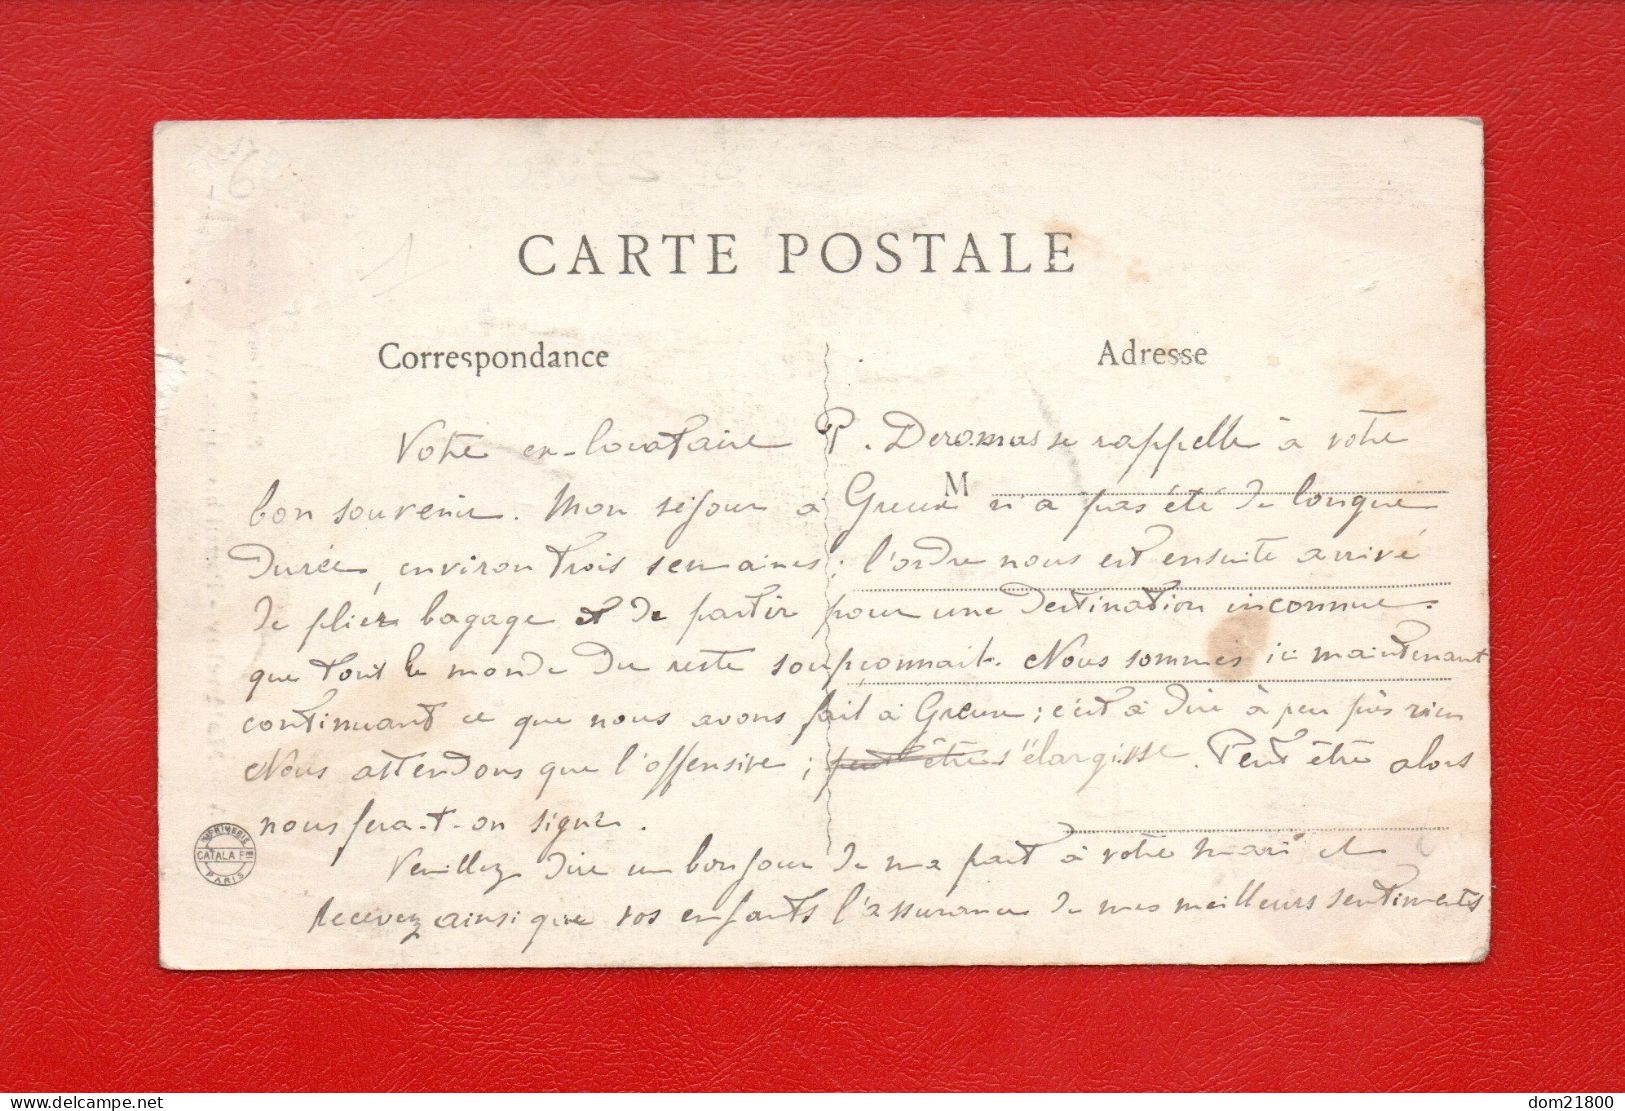 CARTE POSTALE
Correspondance
Adresse
M
Votre ex-locataire P. Deromas se rappelle à votre
bon souvenir. Mon séjour à Greux n'a pas été de longue
durée, environ trois semaines; l'ordre nous est ensuite arrivé
de plier bagage et de partir pour une destination inconnue.
que tout le monde du reste soupçonnait. Nous sommes ici maintenant
continuant ce que nous avons fait à Greux; c'est à dire à peu près rien
Nous attendons que l'offensive; peut être s'élargisse. Peut être alors
nous fera-t-on signe.
Veuillez dire un bonjour de ma part à votre mari et
recevez ainsi que vos enfants l'assurance de mes meilleurs sentiments
IMPRIMERIE
CATALA FRES
PARIS
delcampe.net
dom21800